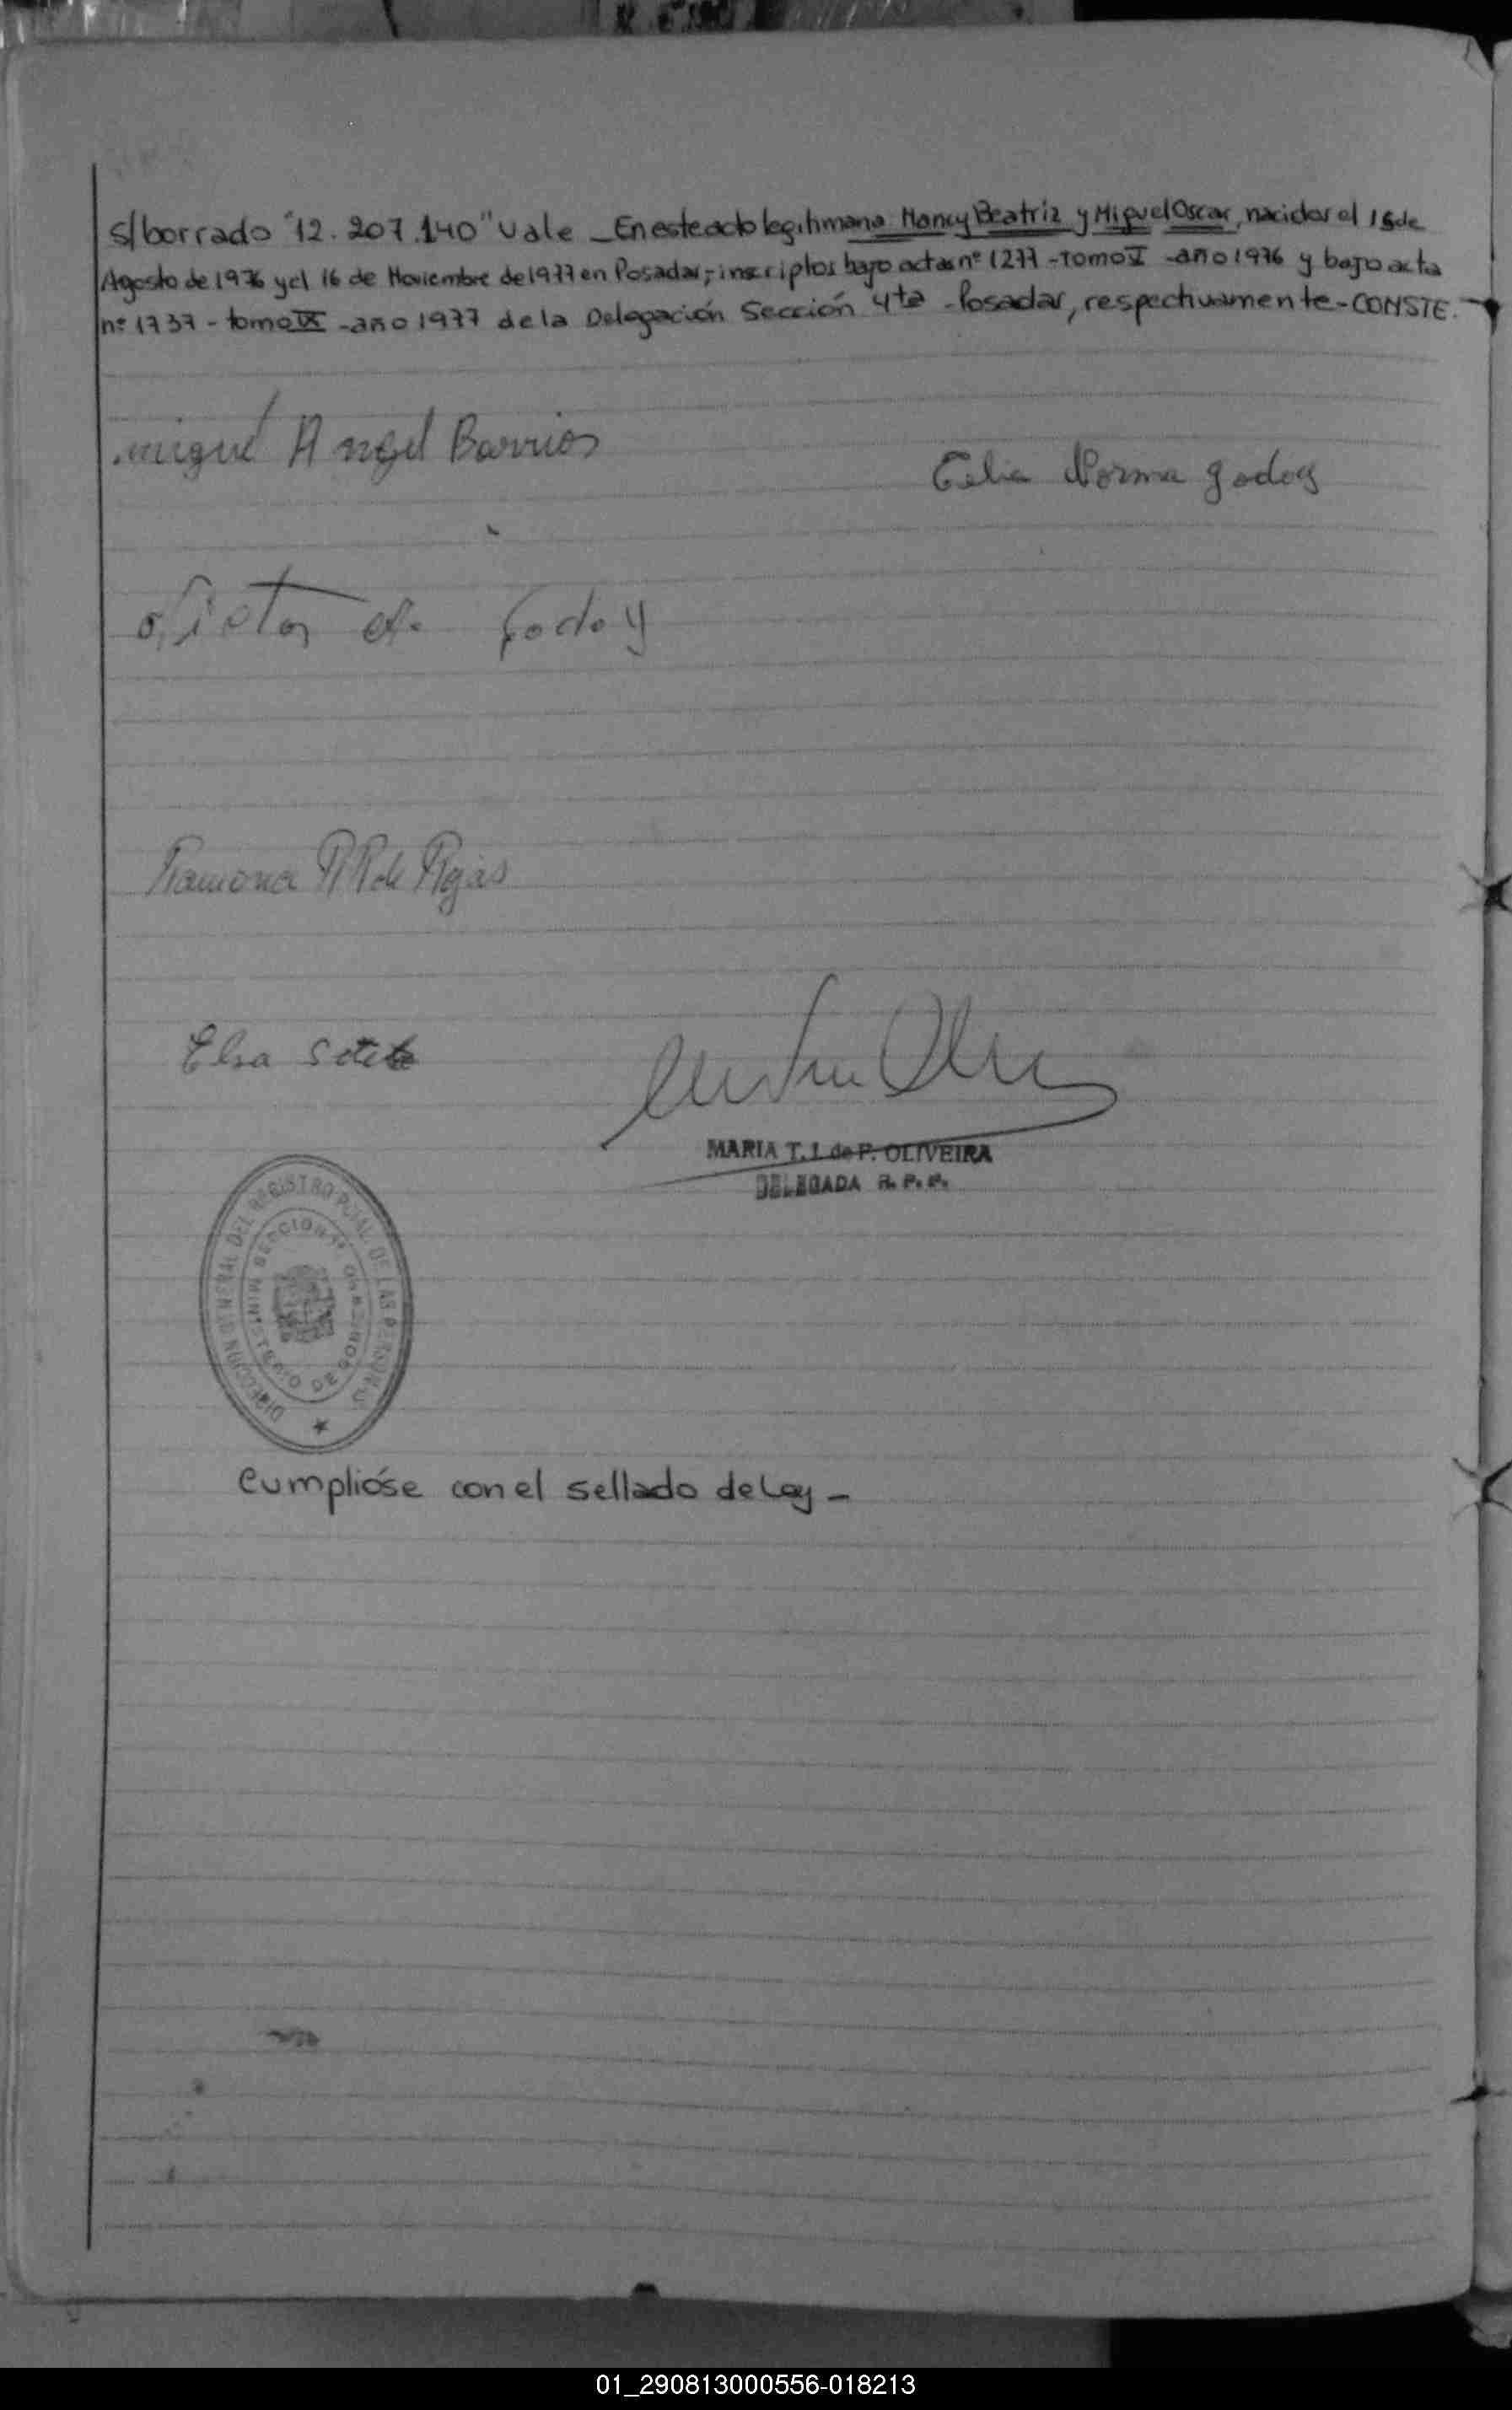 s/borrado "12.207.140" vale _ En este acto legitiman a Nancy Beatriz y Miguel Oscar, nacidos el 15 de
Agosto de 1976 y el 16 de Noviembre de 1977 en Posadas; inscriptos bajo actas nº 1277 - tomo V - año 1976 y bajo acta
nº 1737 - tomo IX - año 1977 de la Delegación Sección 4ta - Posadas, respectivamente - CONSTE.
Miguel Angel Barrios
Celia Norma Godoy
Victor A. Godoy
Ramona R R de Rojas
Elsa
MARIA T. I. de P. OLIVEIRA
DELEGADA R. P. P.
DIRECCION GENERAL DEL REGISTRO PCIAL. DE LAS PERSONAS
MINISTERIO DE GOBIERNO
SECCION 4ª
Cumplióse con el sellado de Ley -
01_290813000556-018213